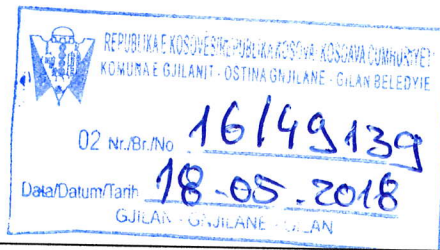 REPUBLIKA E KOSOVËS/REPUBLIKA KOSOVA/KOSOVA CUMHURIYETI
KOMUNA E GJILANIT - OPŠTINA GNJILANE - GİLAN BELEDİYE
02 Nr./Br./No 16/49139
Data/Datum/Tarih 18-05.2018
GJILAN - GNJILANE - GİLAN